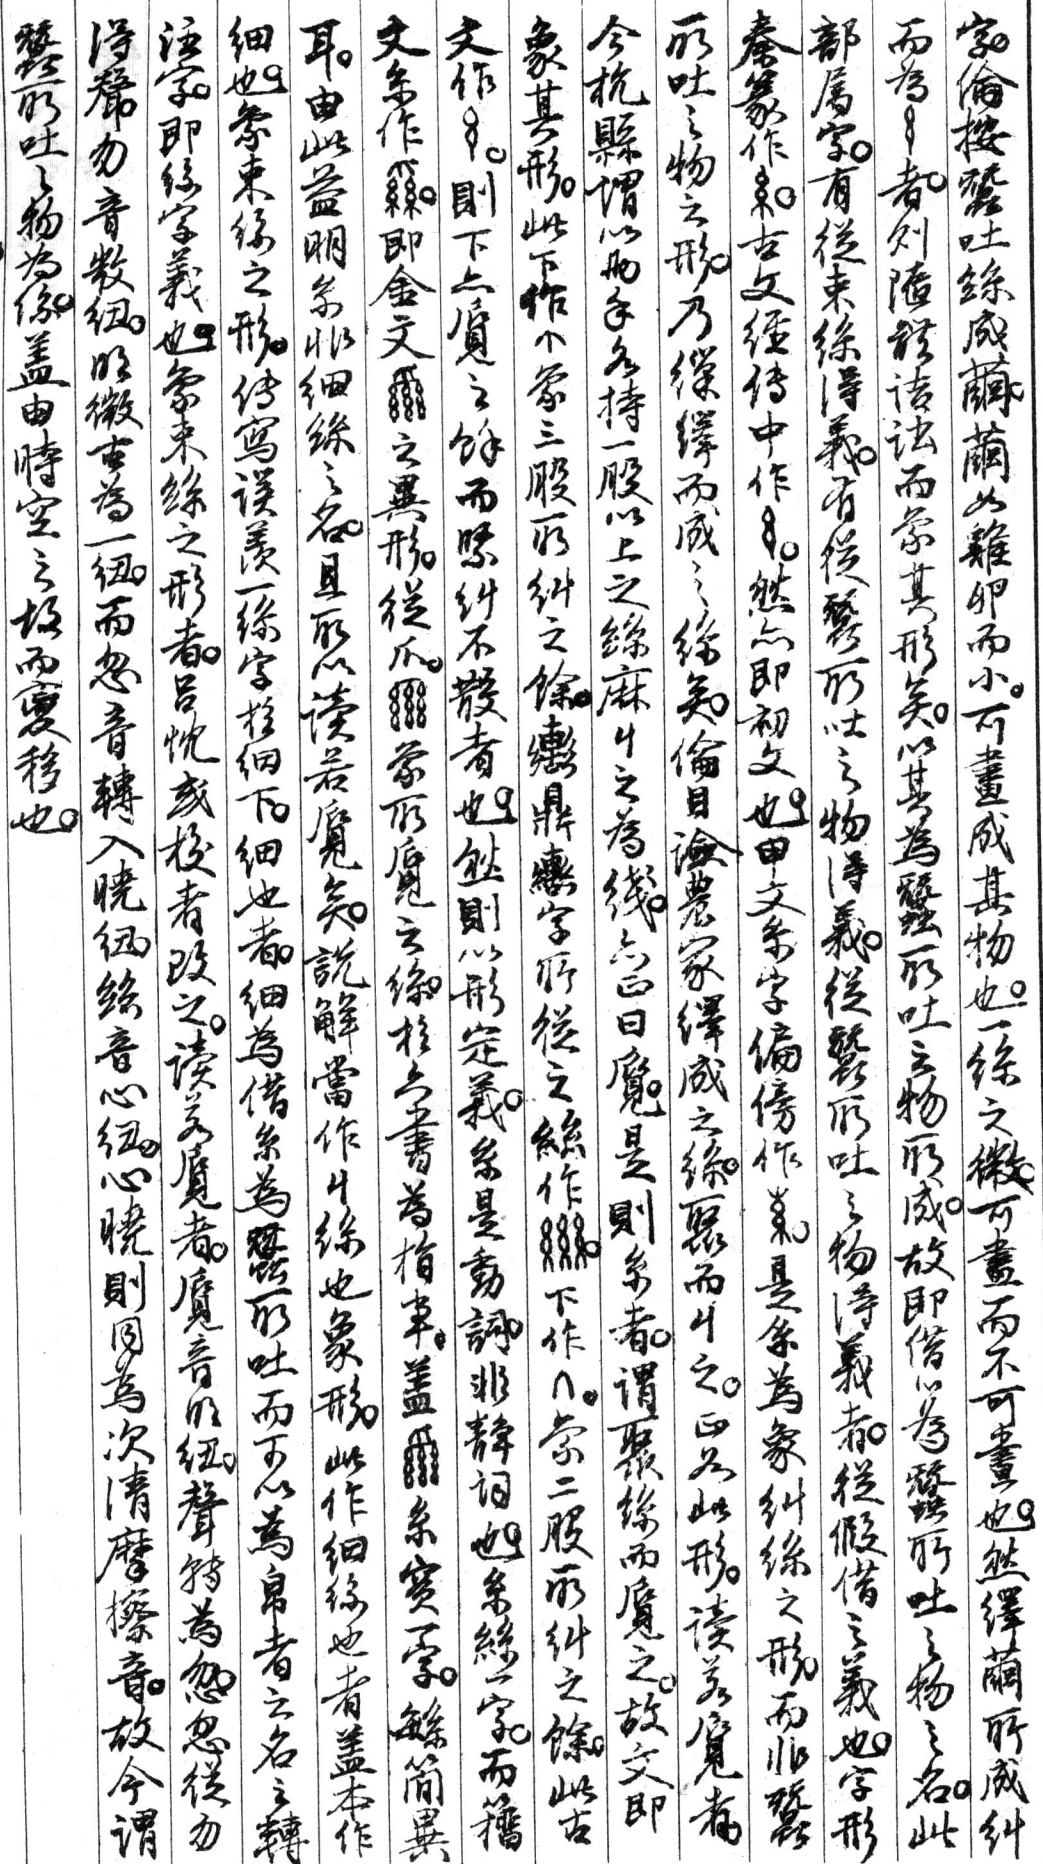 字。倫按蠶吐絲成繭。繭如雞卵而小。可畫成其物也。一絲之微。可畫而不可畫也。然繹繭所成糾
而為者。則隨體詰詘而象其形矣。以其為蠶所吐之物所成。故即借以為蠶所吐之物之名。此
部屬字。有從束絲得義。有從蠶所吐之物得義。從蠶所吐之物得義者。從假借之義也。字形
秦篆作。古文經傳中作。然亦即初文也。甲文糸字偏傍作。是糸為象糾絲之形。而非蠶
所吐之物之形。乃繅繹而成之絲矣。倫目譣農家繹成之絲。聚而丩之。正如此形。讀若覛者。
今杭縣謂以兩手各持一股以上之絲麻丩之為綫。亦正曰覛。是則糸者。謂聚絲而覛之。故文即
象其形。此下作巾象三股所糾之餘。鼎字所從之絲作。下作。象二股所糾之餘。此古
文作。則下亦覛之餘而緊糾不散者也。然則以形定義。糸是動詞。非靜詞也。糸絲一字。而籀
文糸作。即金文之異形。從爪。象所覛之絲。於六書為指事。蓋糸實一字。緐簡異
耳。由此益明糸非細絲之名。且所以讀若覛矣。說解當作丩絲也象形。此作細絲也者。蓋本作
細也。象束絲之形。傳寫誤羨一絲字於細下。細也者。細為借糸為蠶所吐而可以為帛者之名之轉
注字。即絲字義也。象束絲之形者。呂忱或校者改之。讀若覛者。覛音明紐。聲轉為忽。忽從勿
得聲。勿音微紐。明微古為一紐。而忽音轉入曉紐。絲音心紐。心曉則同為次清摩擦音。故今謂
蠶所吐之物為絲。蓋由時空之故而變移也。